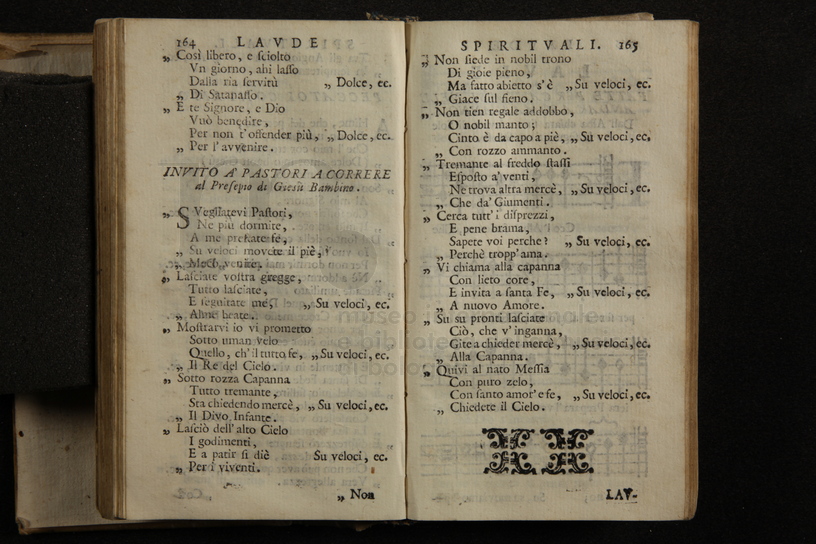 164 LAVDE
„ Così libero, e sciolto
Vn giorno, ahi lasso
Dalla ria servitù „ Dolce, ec.
„ Di Satanasso.
„ E te Signore, e Dio
Vuò benedire,
Per non t'offender più, „ Dolce, ec.
„ Per l'avvenire.
INVITO A' PASTORI A CORRERE
al Presepio di Giesù Bambino.
„ SVegliatevi Pastori,
Ne più dormite,
A me prestate fè,
„ Su veloci movete il piè,
„ Meco venite.
„ Lasciate vostra gregge,
Tutto lasciate,
E seguitate me, „ Su veloci, ec.
„ Alme beate.
„ Mostrarvi io vi prometto
Sotto uman velo
Quello, ch'il tutto fe, „ Su veloci, ec.
„ Il Re del Cielo.
„ Sotto rozza Capanna
Tutto tremante,
Sta chiedendo mercè, „ Su veloci, ec.
„ Il Divo Infante.
„ Lasciò dell'alto Cielo
I godimenti,
E a patir si diè Su veloci, ec.
„ Per i viventi.
„ Non
SPIRITVALI. 165
„ Non siede in nobil trono
Di gioie pieno,
Ma fatto abietto s'è „ Su veloci, ec.
„ Giace sul fieno.
„ Non tien regale addobbo,
O nobil manto;
Cinto è da capo a piè, „ Su veloci, ec.
„ Con rozzo ammanto.
„ Tremante al freddo stassi
Esposto a' venti,
Ne trova altra mercè, „ Su veloci, ec.
„ Che da' Giumenti.
„ Cerca tutt'i disprezzi,
E pene brama,
Sapete voi perche? „ Su veloci, ec.
„ Perchè tropp'ama.
„ Vi chiama alla capanna
Con lieto core,
E invita a santa Fe, „ Su veloci, ec.
„ A nuovo Amore.
„ Su su pronti lasciate
Ciò, che v'inganna,
Gite a chieder mercè, „ Su veloci, ec.
„ Alla Capanna.
„ Quivi al nato Messia
Con puro zelo,
Con santo amor' e fe, „ Su veloci, ec.
„ Chiedete il Cielo.
LAV-